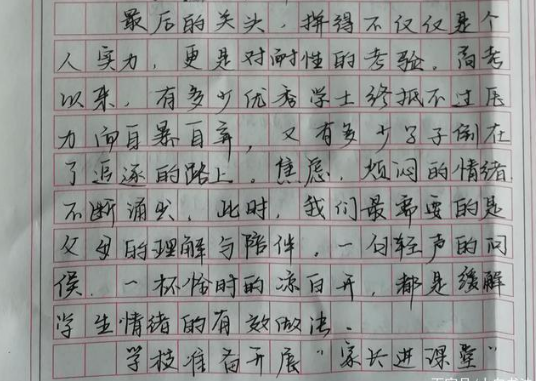 最后的关头，拼得不仅仅是个
人实力，更是对耐性的考验。高考
以来，有多少优秀学士终抵不过压
力而自暴自弃，又有多少学子倒在
了追逐的路上。焦虑，烦闷的情绪
不断涌出，此时，我们最需要的是
父母的理解与陪伴，一句轻声的问
候，一杯恰时的凉白开，都是缓解
学生情绪的有效做法。
学校准备开展“家长进课堂”